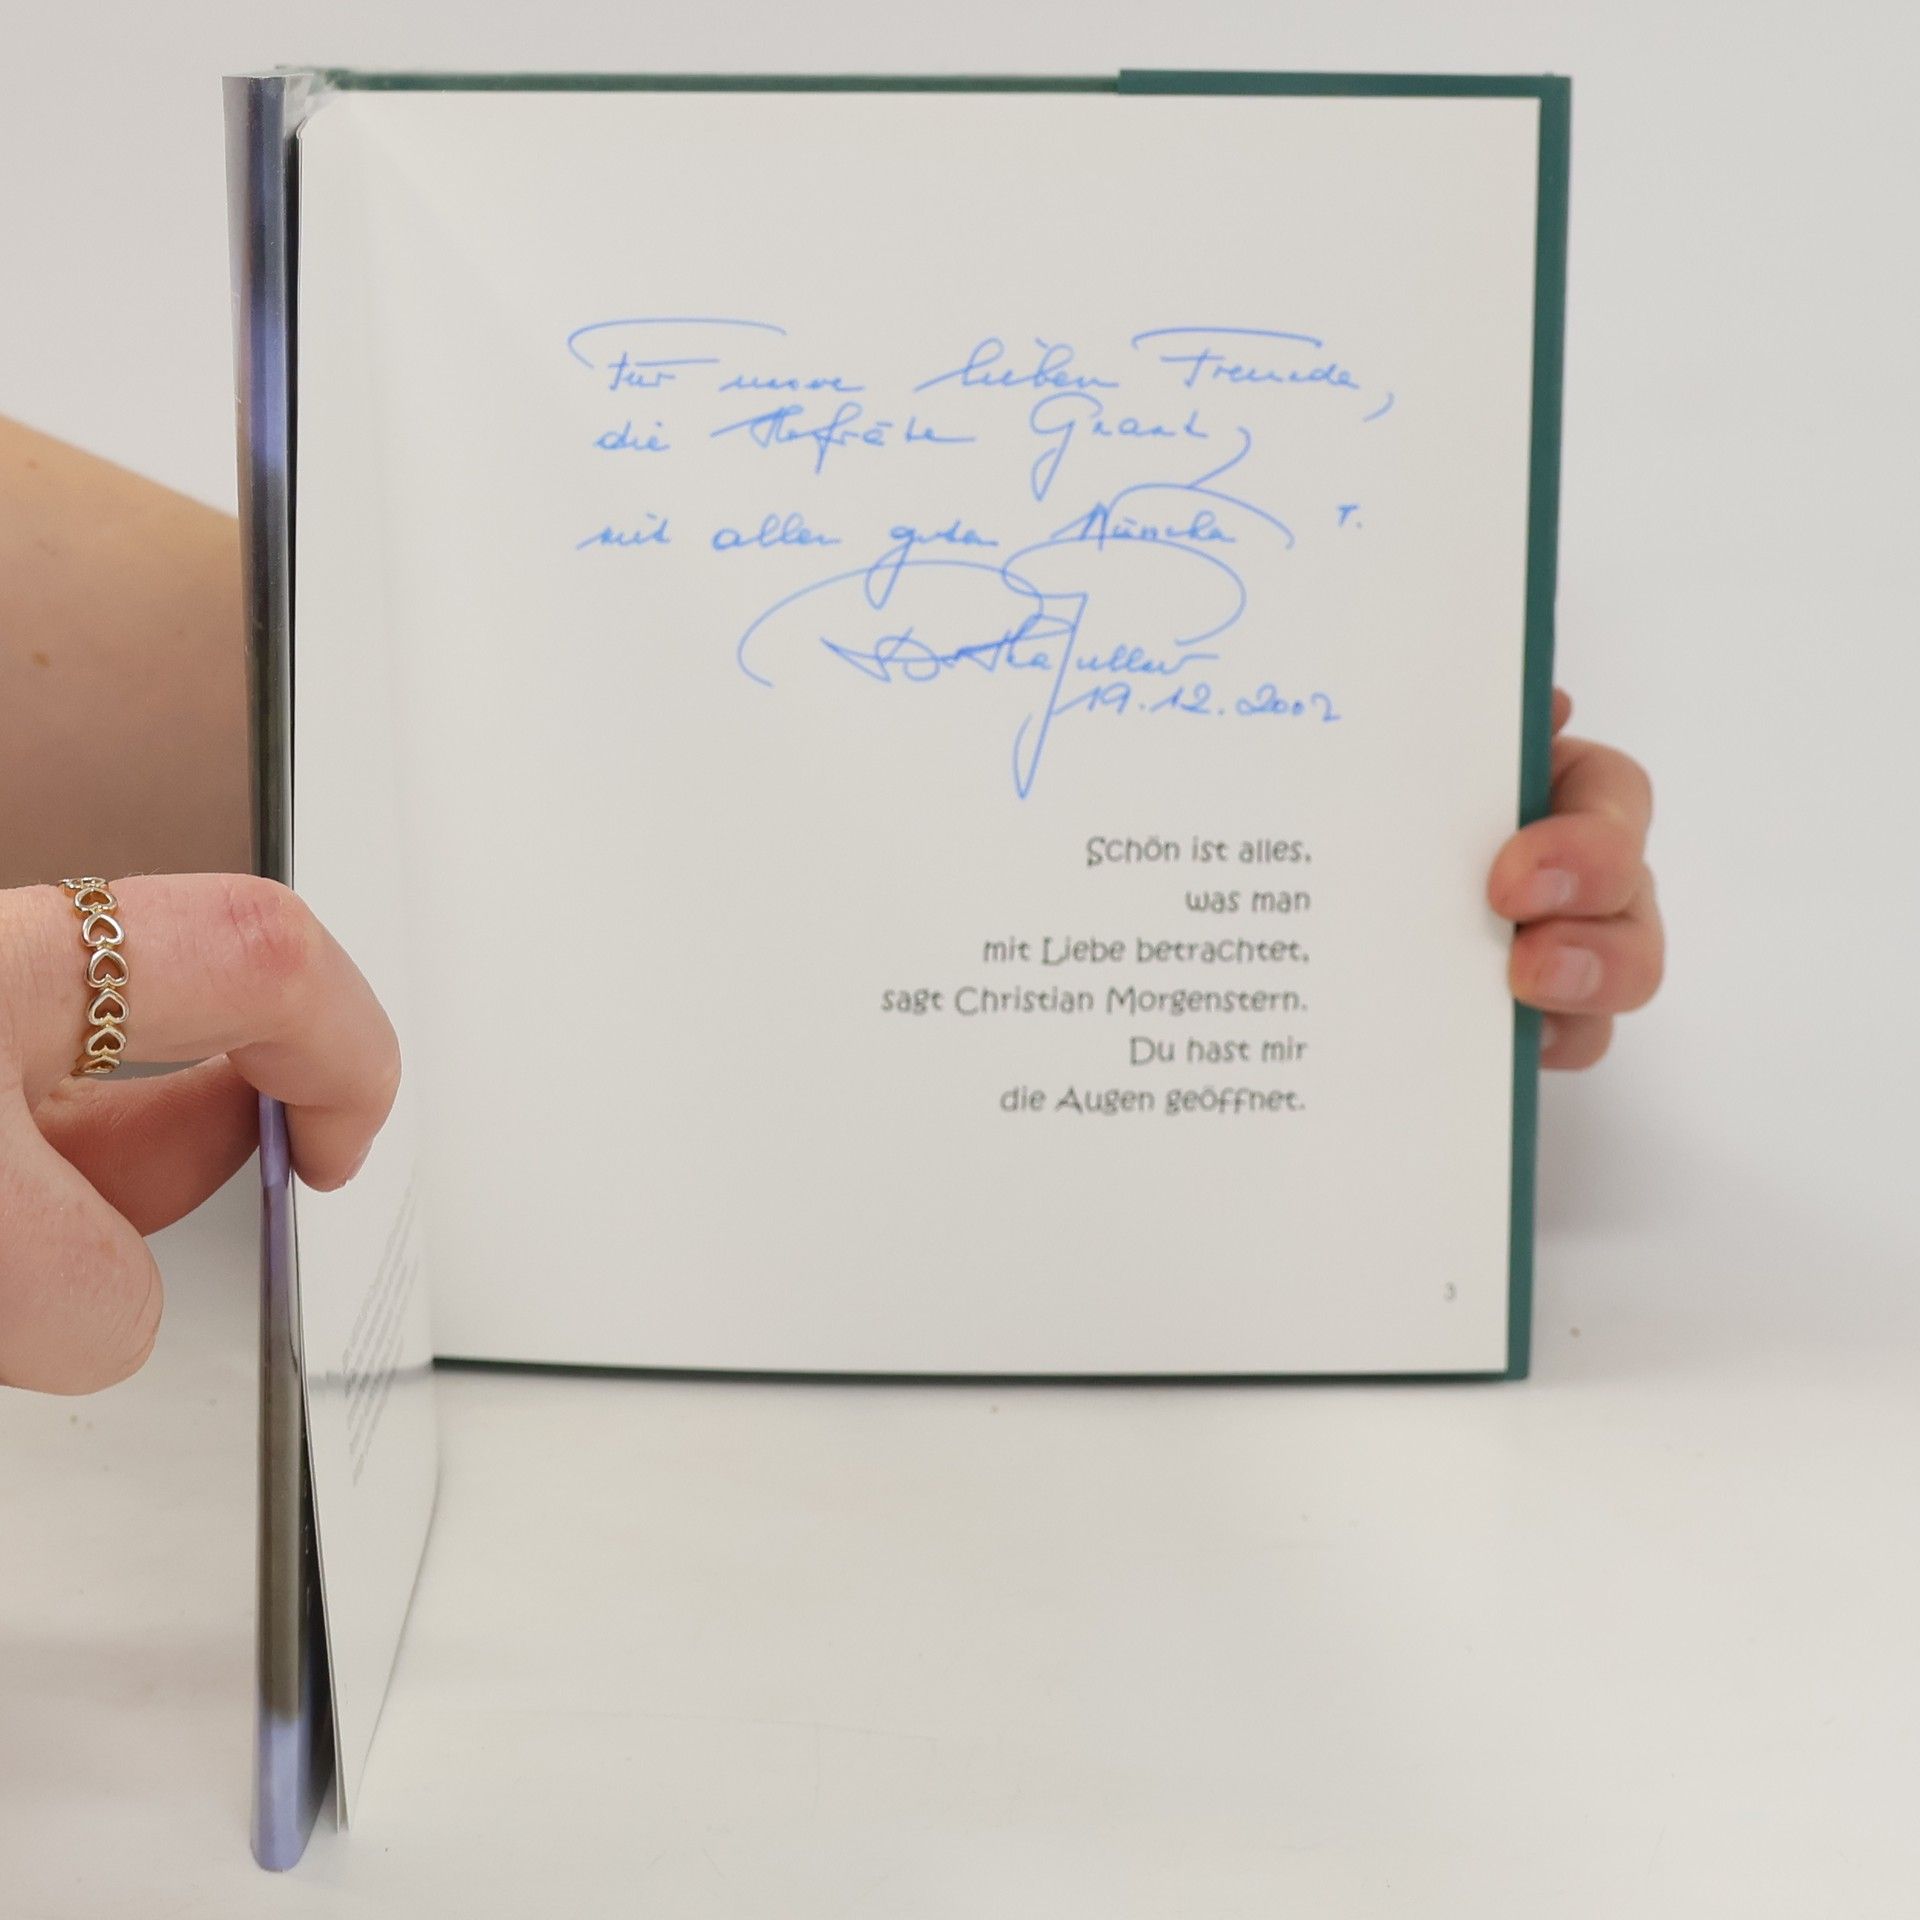 Für unsere lieben Freunde,
die Hofräte
mit allen guten Wünschen
19.12.2002
Schön ist alles,
was man
mit Liebe betrachtet,
sagt Christian Morgenstern.
Du hast mir
die Augen geöffnet.
3